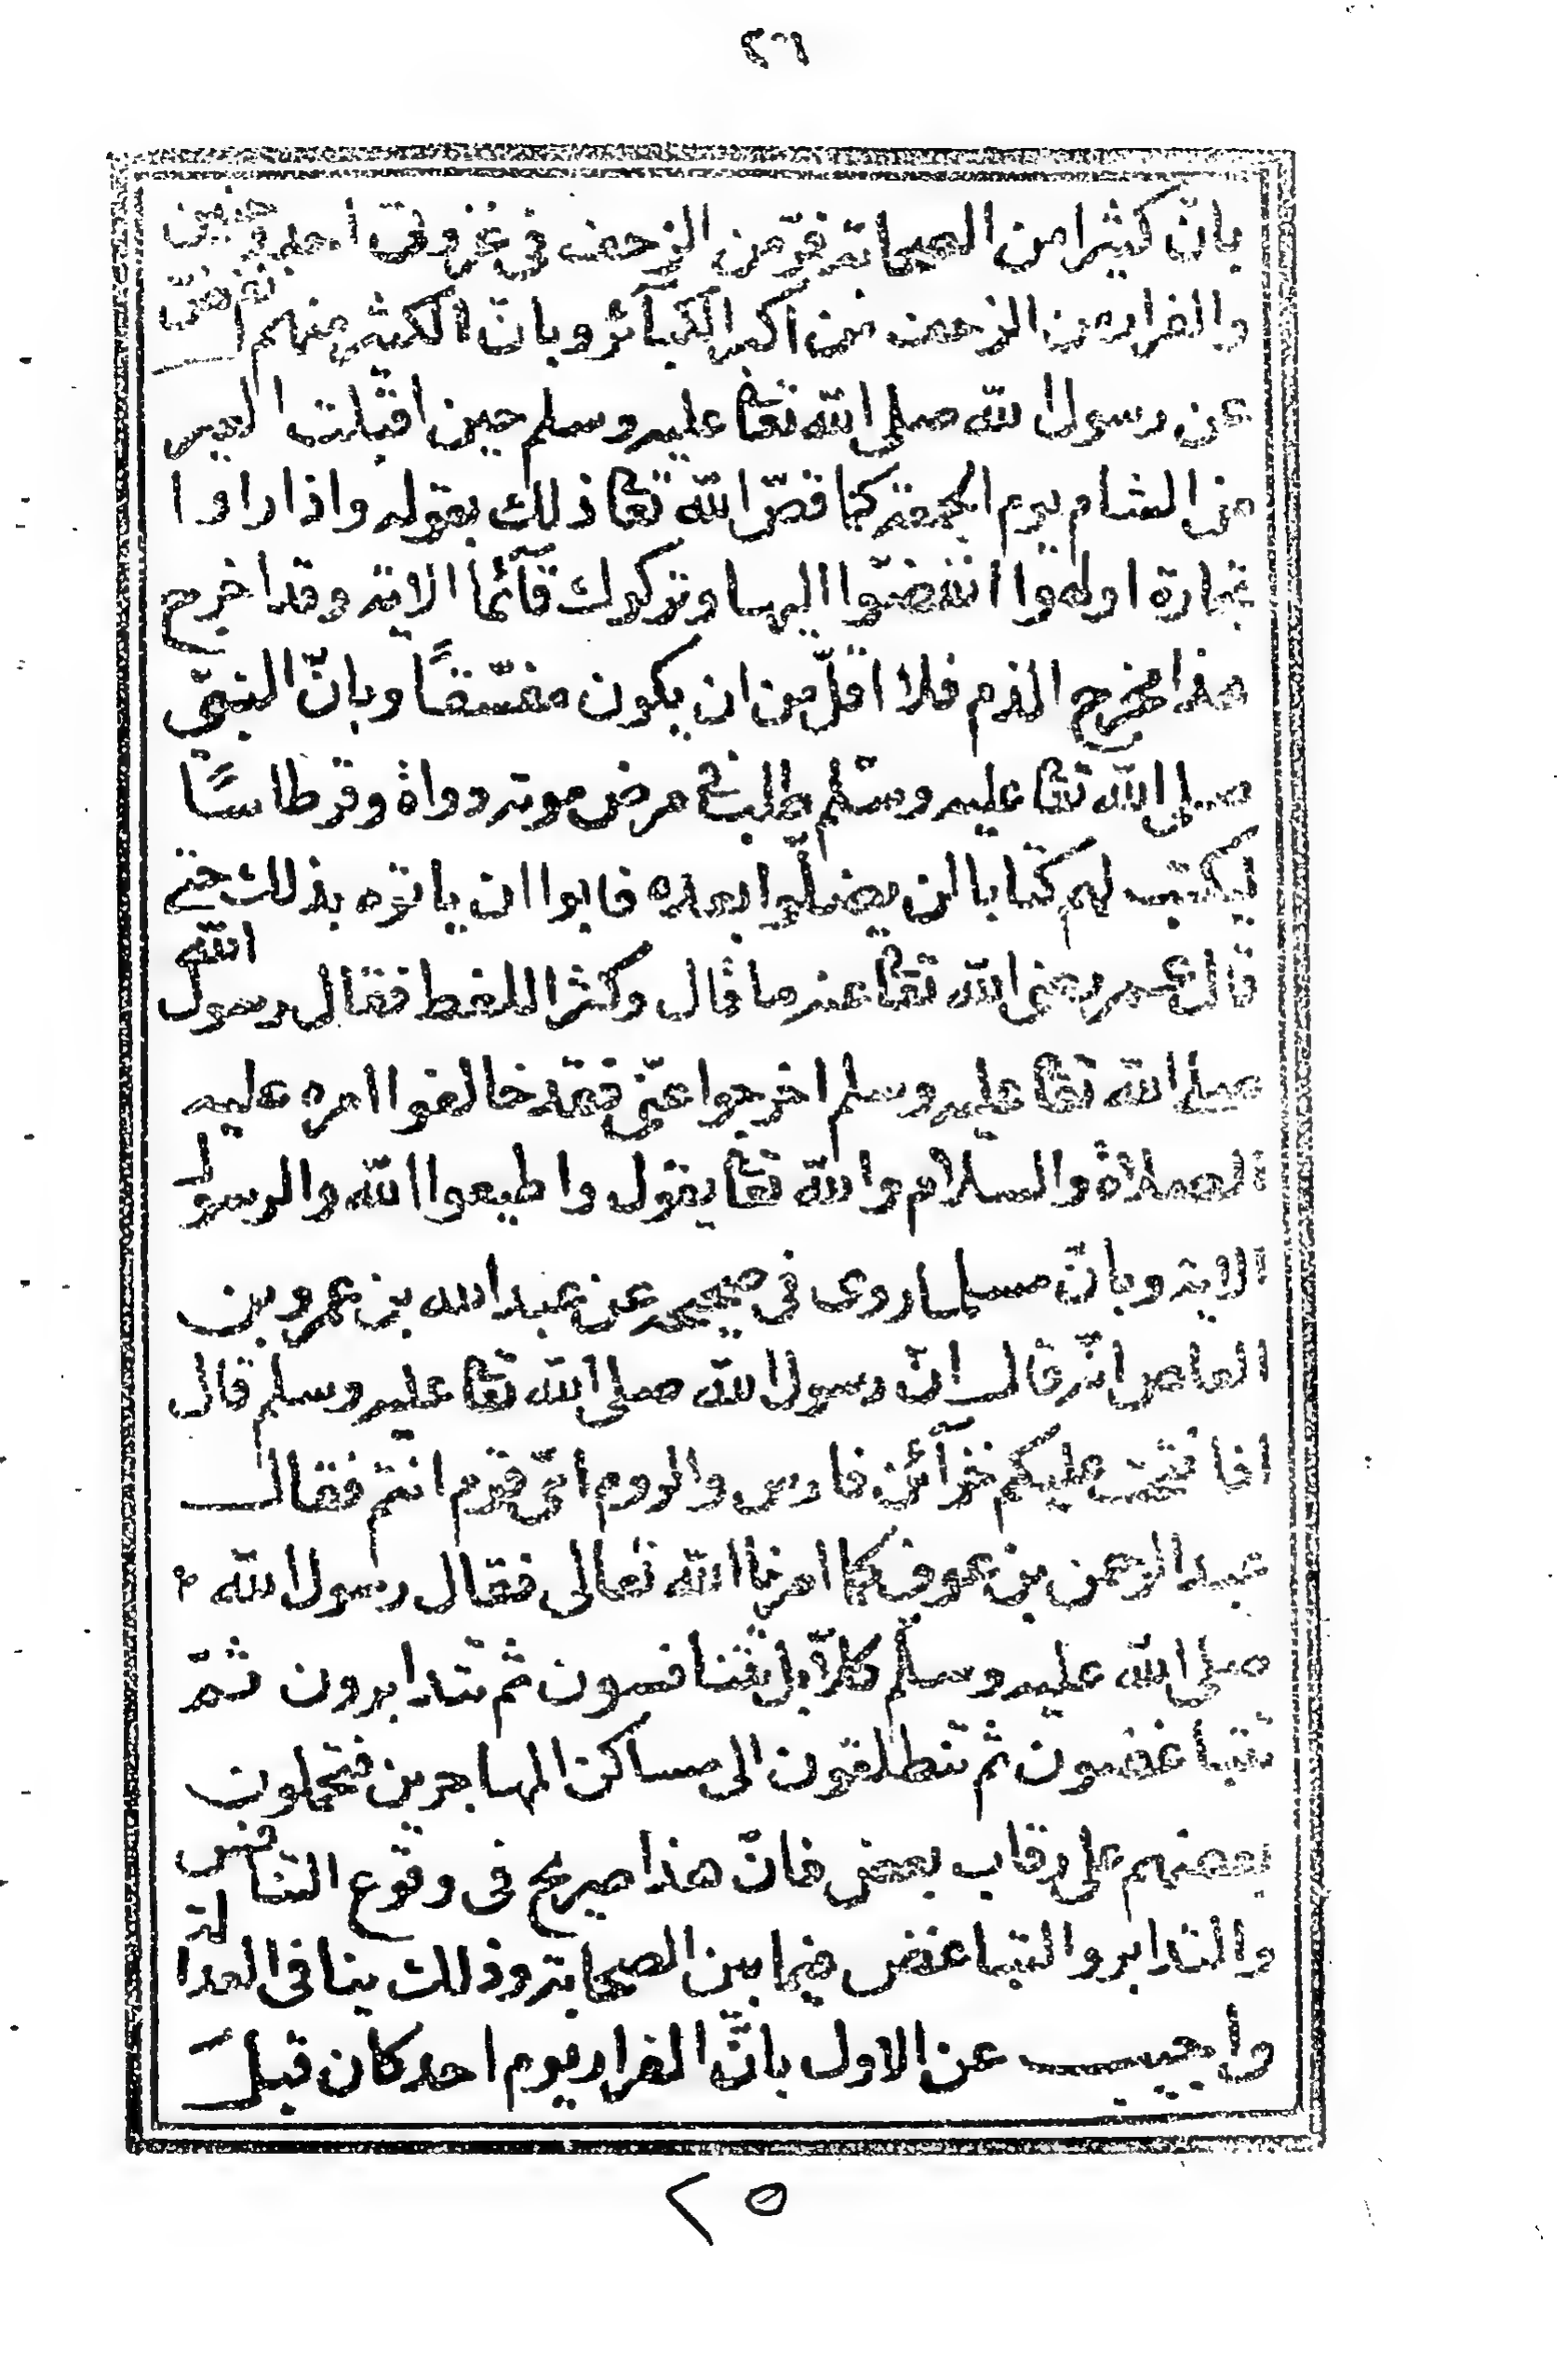 ٢٦
بانّ كثيرا من الصحابة فرّ من الزحف فى غزوتى احد وحنين
والفرار من الزحف من اكبر الكبآئر وبانّ اكثرهم انفضّ
عن رسول الله صلى الله تعا عليه وسلم حين اقبلت العير
من الشام يوم الجمعة كما قصّ الله تعا ذلك بقوله واذا راوا
تجارة او لهوا انفضّوا اليها وتركوك قآئما الاية وقد اخرج
هذا مخرج الذم فلا اقلّ من ان يكون مفسّقًا وبانّ النبىّ
صلى الله تعا عليه وسلّم طلب فى مرض موته دواة وقرطاسًا
ليكتب لهم كتابا لن يضلّوا بعده فابوا ان ياتوه بذلك حتى
قال عمر رضى الله تعا عنه ما قال وكثر اللغط فقال رسول الله
صلى الله تعا عليه وسلم اخرجوا عنّى فقد خالفوا امره عليه
الصلاة والسلام والله تعا يقول واطيعوا الله والرسول
الاية وبانّ مسلما روى فى صحيحه عن عبد الله بن عمرو بن
العاص انّه قال انّ رسول الله صلى الله تعا عليه وسلم قال
اذا فتحت عليكم خزآئن فارس والروم اىّ قوم انتم فقال
عبد الرحمن بن عوف كما امرنا الله تعالى فقال رسول الله
صلى الله عليه وسلّم كلاّ بل تتنافسون ثم تتدابرون ثمّ
تتباغضون ثم تنطلقون الى مساكن المهاجرين فتحملون
بعضهم على رقاب بعض فانّ هذا صريح فى وقوع التنافس
والتدابر والتباغض فيما بين الصحابة وذلك ينافى العدالة
واجيب عن الاول بانّ الفرار يوم احد كان قبل
٢٥